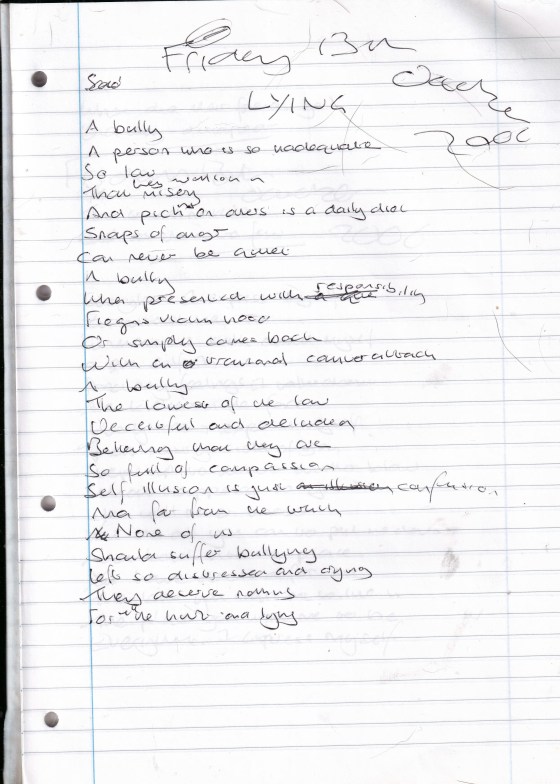 Friday 13th
October
2006
LYING
A bully
A person who is so inadequate
So low
That misery
And picking on others is a daily diet
Snaps of anger
Can never be quiet
A bully
When presented with responsibility
Feigns victim hood
Or simply comes back
With an emotional counter attack
A bully
The lowest of the low
Deceitful and deluded
Believing that they are
So full of compassion
Self illusion is just confusion
And far from the truth
None of us
Should suffer bullying
Left so distressed and crying
They deserve nothing
For the hurt and lying